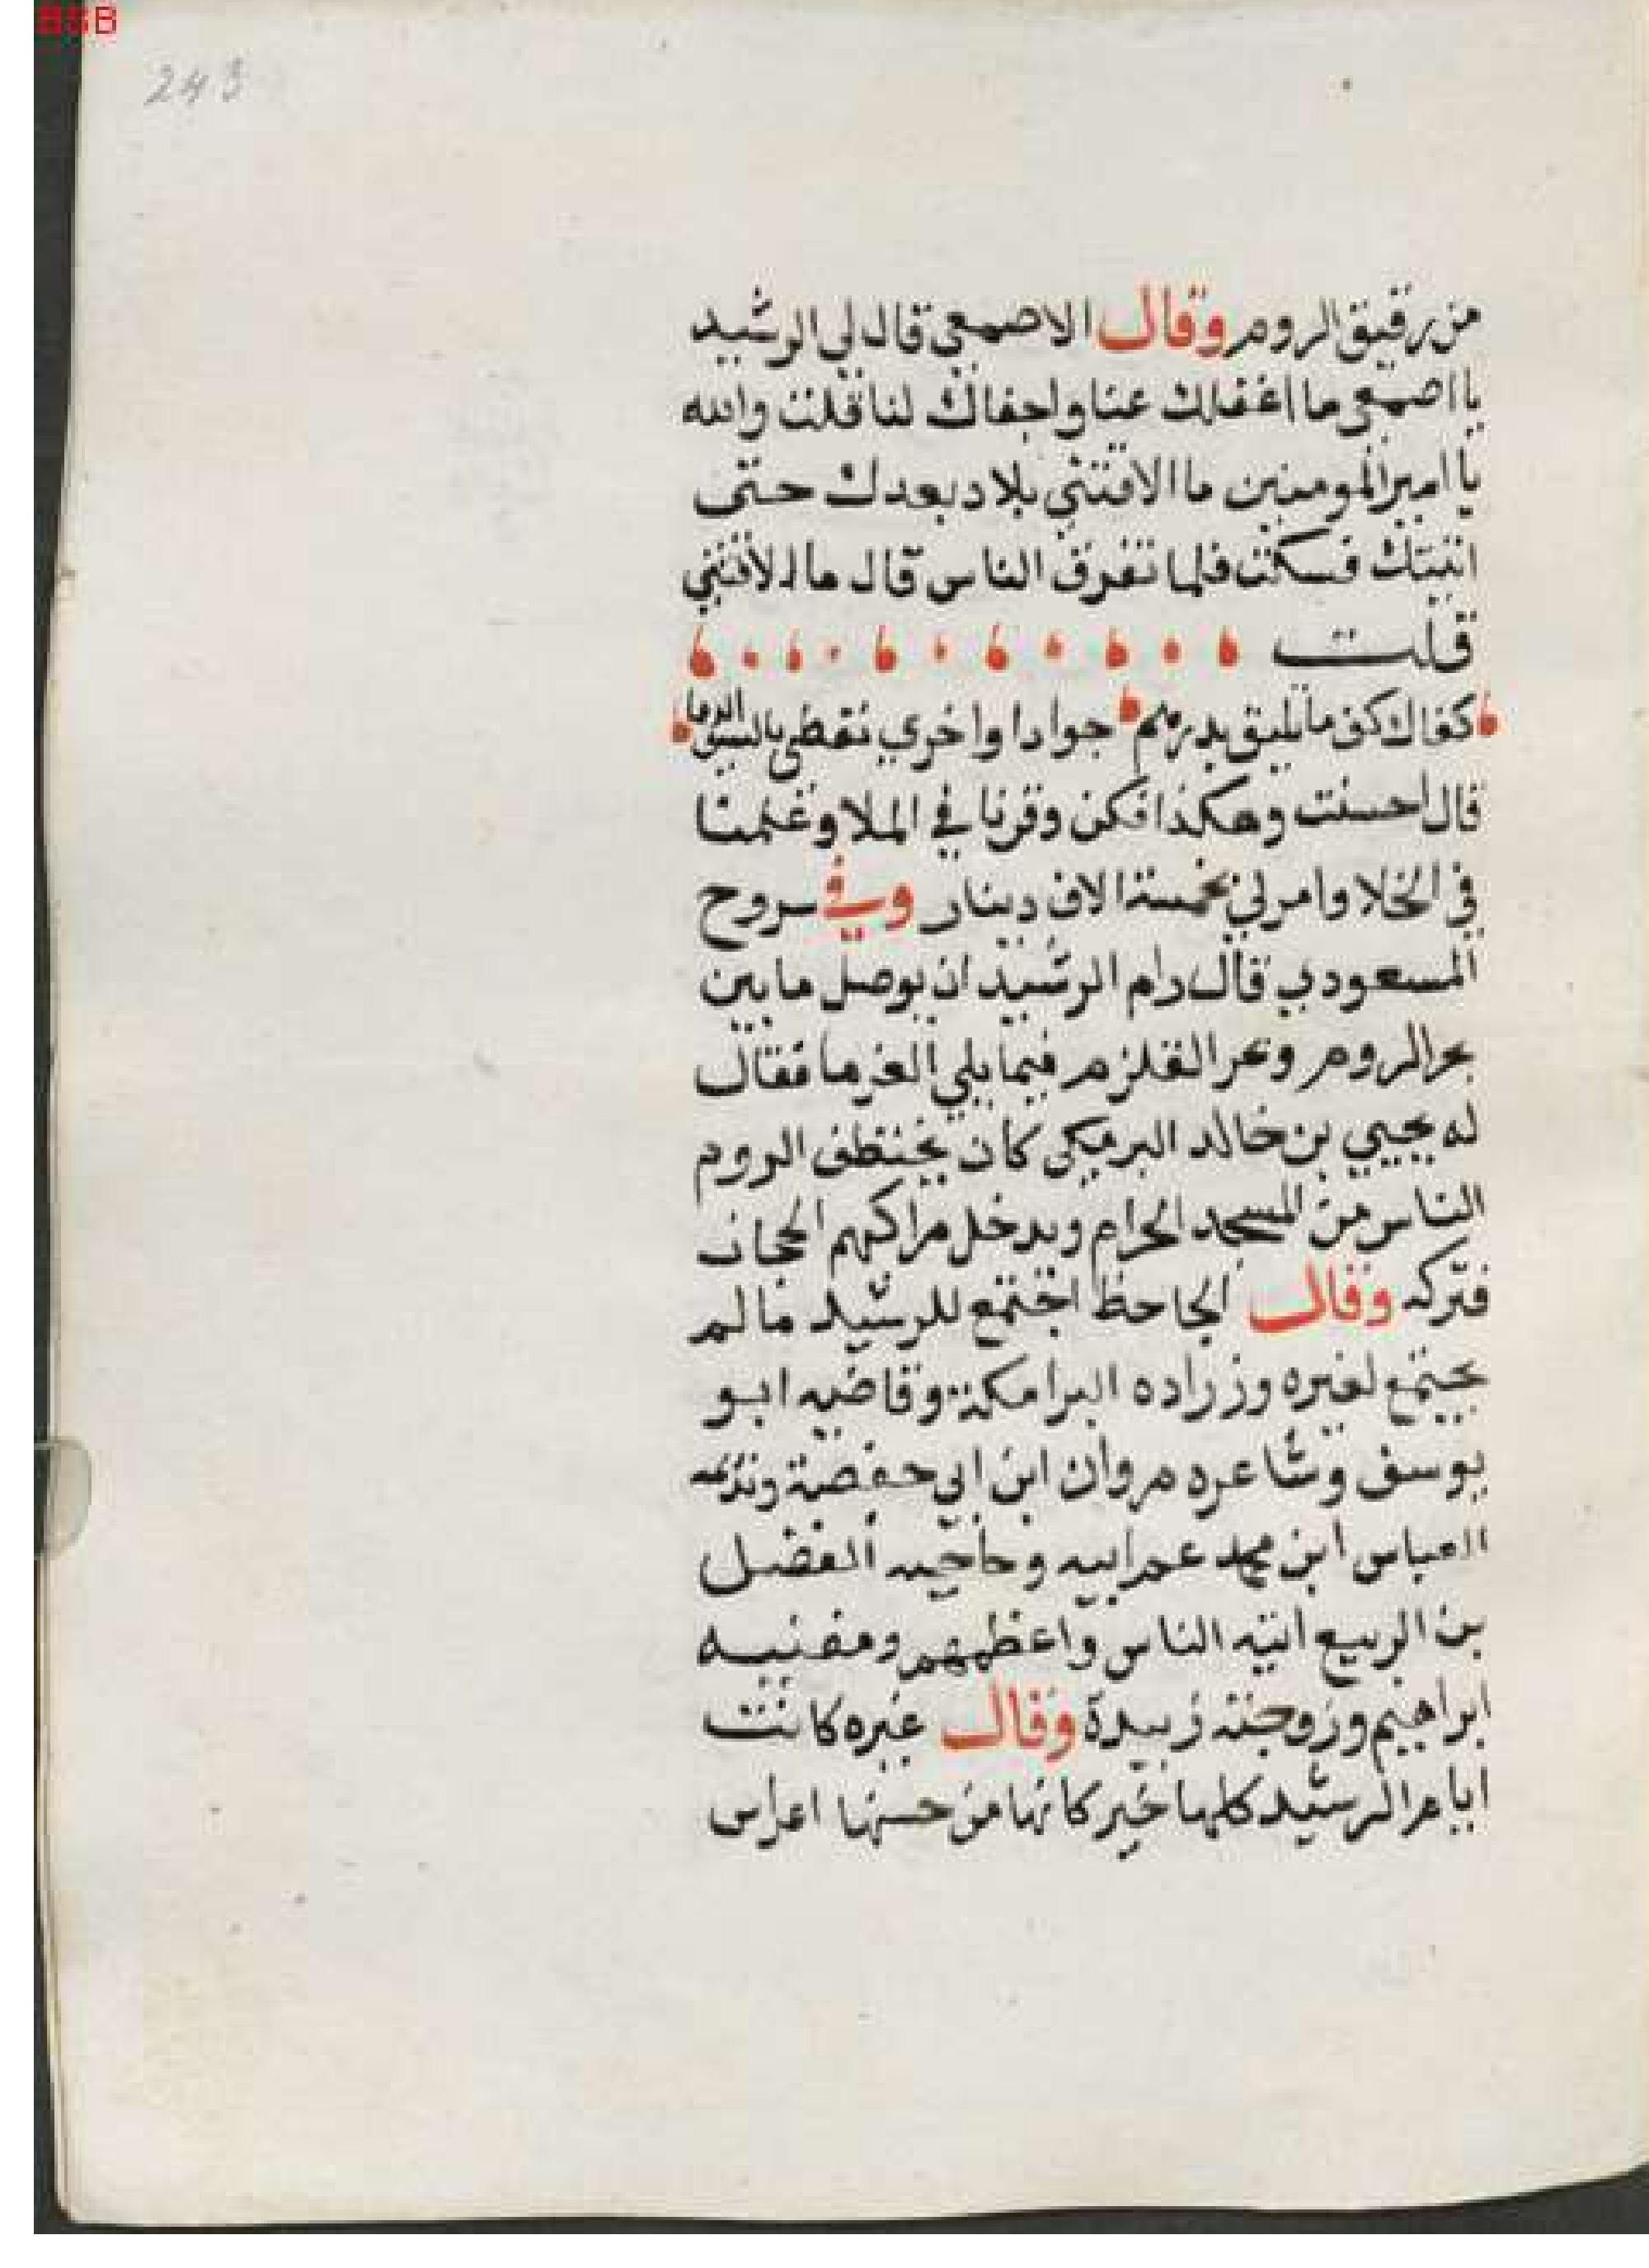 BSB
243
من رقيق الروم وقال الاصمعي قال لي الرشيد
يا اصمعي ما اغفلك عنا واجفاك لنا قلت والله
يا امير المومنين ما الاقتني بلاد بعدك حتى
اتيتك فسكت فلما تفرق الناس قال ما الاقتني
قلت
كفاك كف ما تليق بدرهم جوادا واخري تقطى بالسيف الدما
قال احسنت وهكذا فكن وقرنا في الملا وعلمنا
في الخلا وامر لي بخمسة الاف دينار وفي سروح
المسعودي قال رام الرشيد ان يوصل ما بين
بحر الروم وبحر القلزم فيما يلي الفرما فقال
له يحيي بن خالد البرمكى كان يختطف الروم
الناس من المسجد الحرام ويدخل مراكبهم الحجاز
فتركه وقال الجاحظ اجتمع للرشيد ما لم
يجتمع لغيره وزراده البرامكة وقاضيه ابو
يوسف وشاعره مروان ابن ابي حفصة ونديمه
العباس ابن محمد عم ابيه وحاجبه الفضل
بن الربيع اتيه الناس واعظمهم ومغنيه
ابراهيم وزوجته زبيدة وقال غيره كانت
ايام الرشيد كلها خير كانها من حسنها اعراس